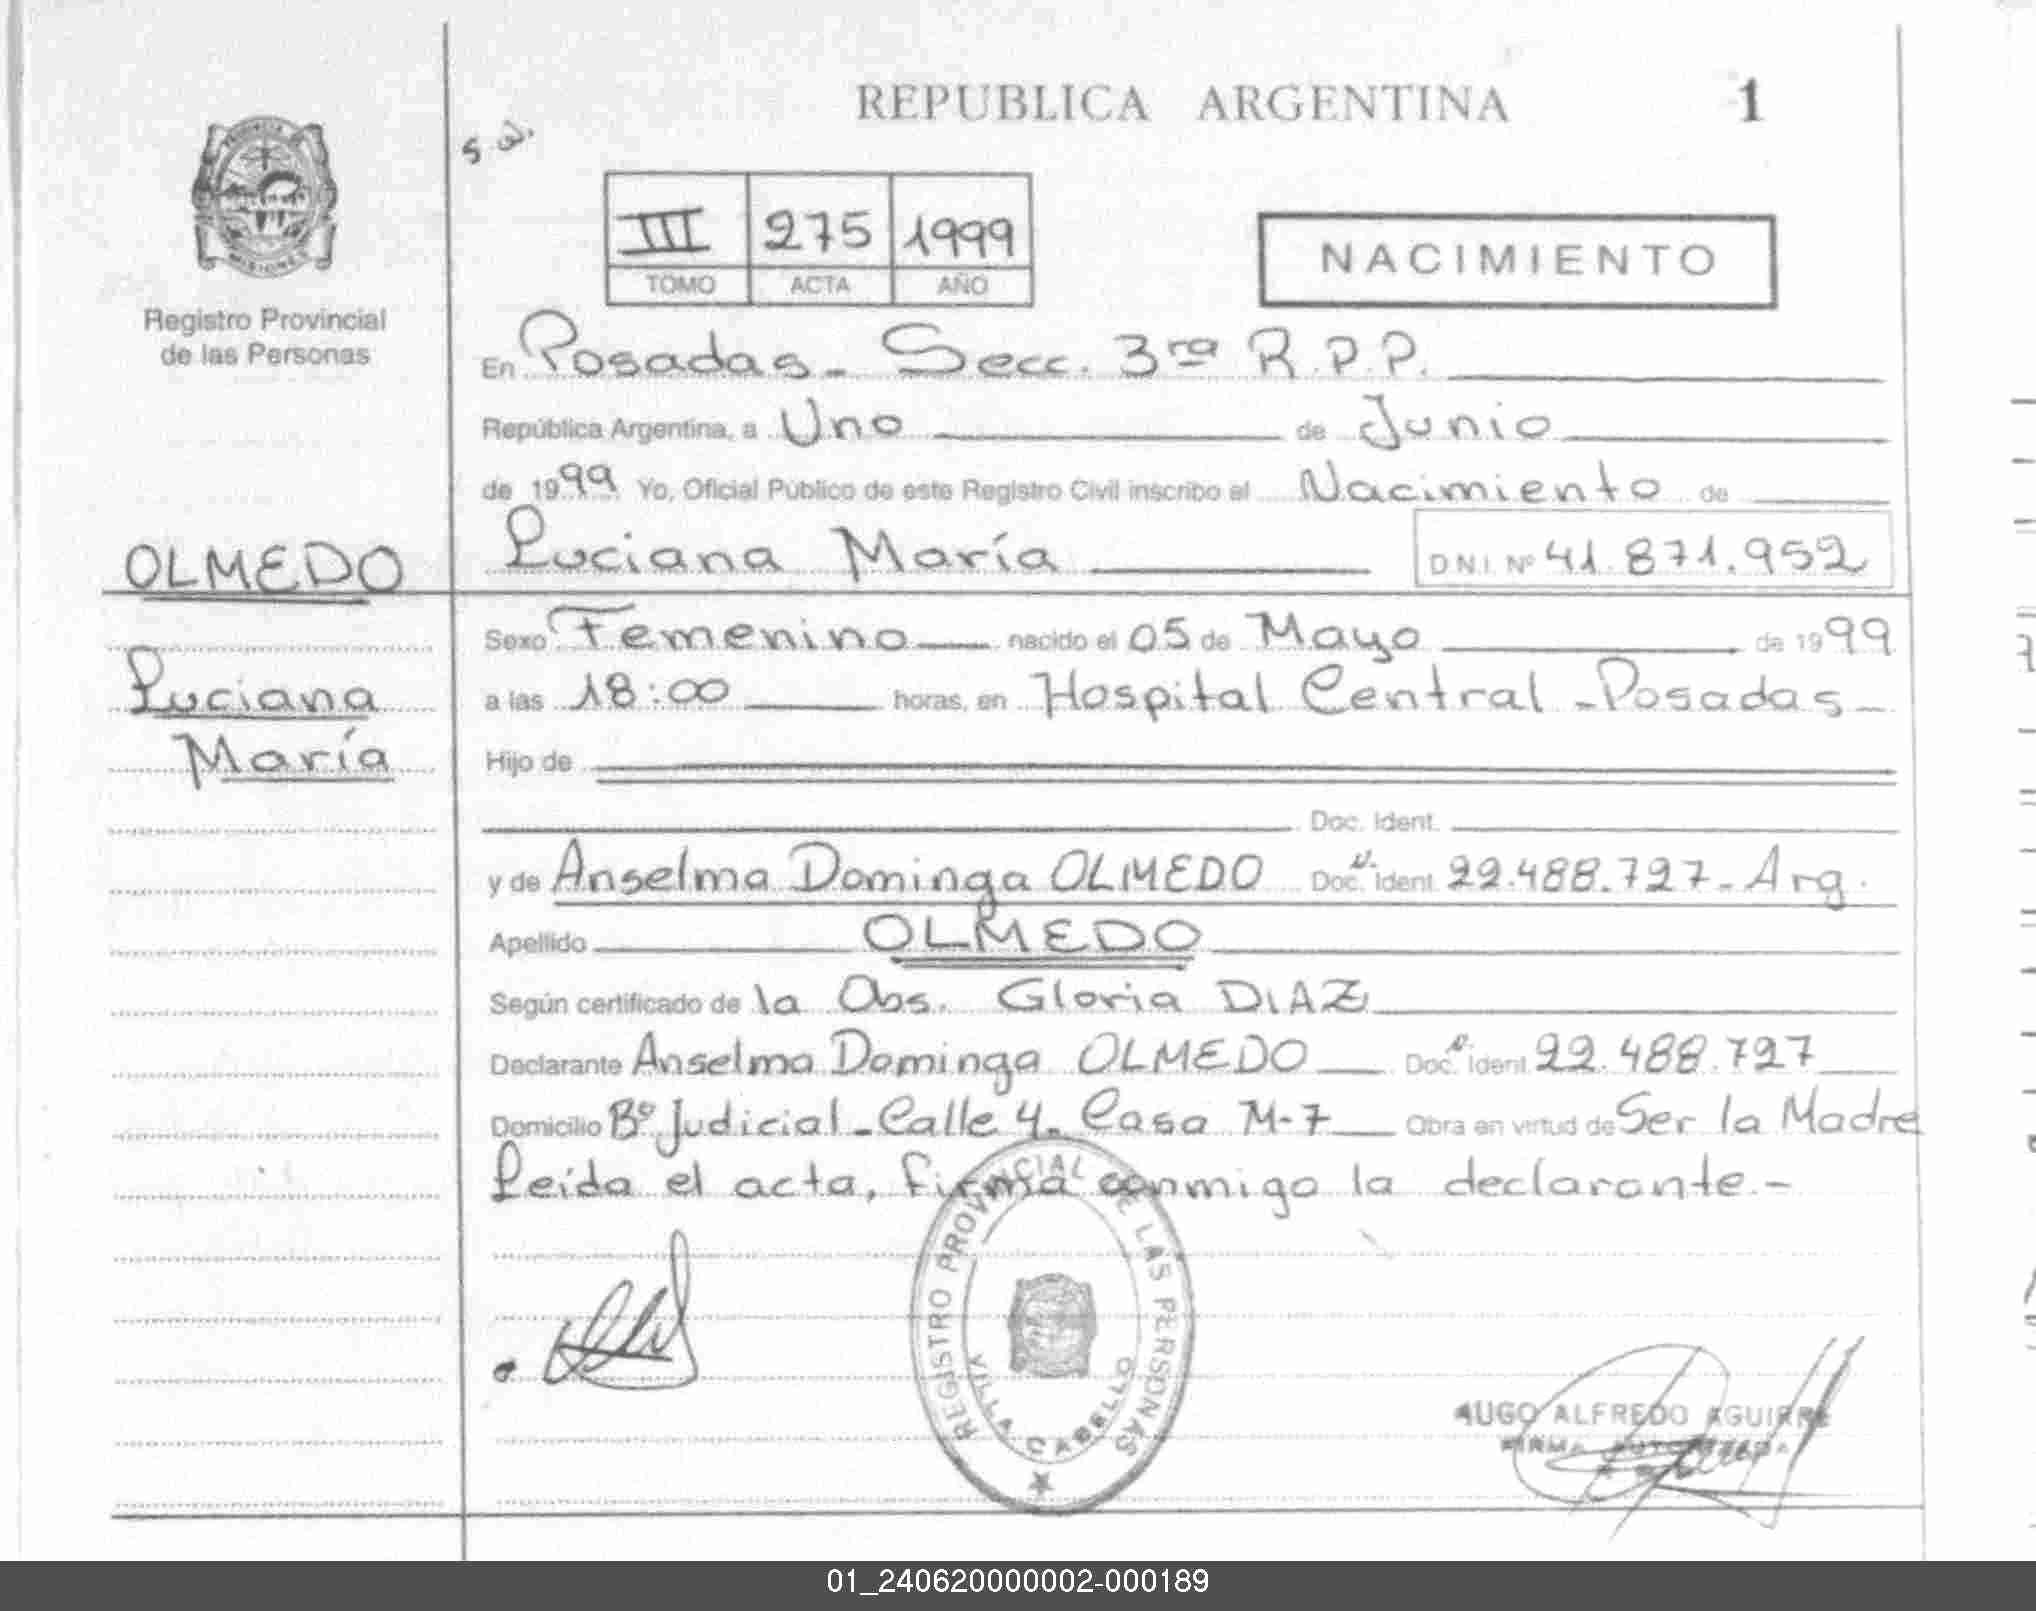 REPUBLICA ARGENTINA 1
PROVINCIA
MISIONES
Registro Provincial
de las Personas
III 275 1999
TOMO ACTA AÑO
NACIMIENTO
En Posadas - Secc. 3ra R.P.P.
República Argentina, a Uno de Junio
de 1999 Yo, Oficial Público de este Registro Civil inscribo el Nacimiento de
OLMEDO
Luciana María D.N.I. Nº 41.871.952
Sexo Femenino nacido el 05 de Mayo de 1999
Luciana
a las 18:00 horas, en Hospital Central - Posadas -
María
Hijo de
Doc. Ident.
y de Anselma Dominga OLMEDO Doc. Ident. 22.488.727 - Arg.
Apellido OLMEDO
Según certificado de la Obs. Gloria DIAZ
Declarante Anselma Dominga OLMEDO Doc. Ident. 22.488.727
Domicilio Bº Judicial - Calle 4 - Casa M-7 Obra en virtud de Ser la Madre
Leída el acta, firma conmigo la declarante.-
REGISTRO PROVINCIAL DE LAS PERSONAS
VILLA CABELLO
HUGO ALFREDO AGUIRRE
01_240620000002-000189